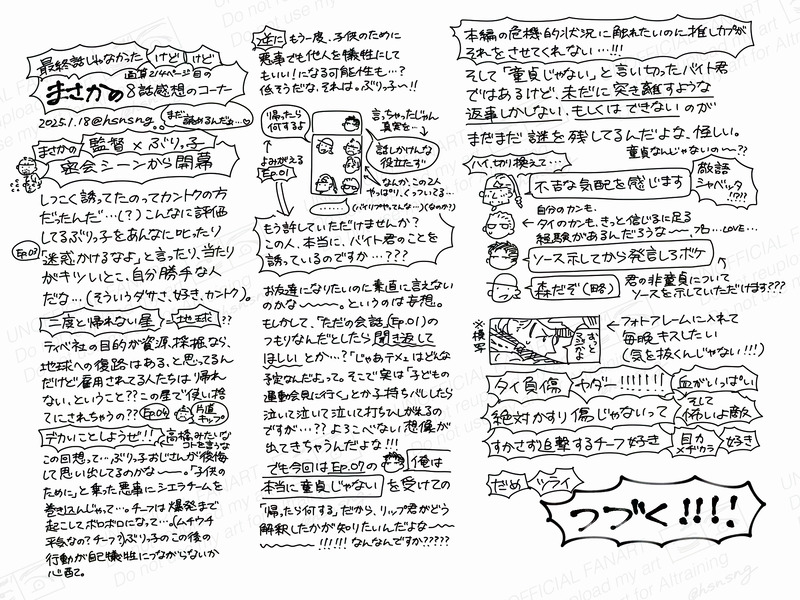 最終話じゃなかった けど けど
画算2/4ページ目の
まさかの8話感想のコーナー
2025.1.18@hsnsng
まだ読めるんだな…♡
まさかの 監督×ぶりっ子
密会シーンから開幕
しつこく誘ってたのってカントクの方
だったんだ…(?)こんなに評価
してるぶりっ子をあんなに叱ったり
Ep.03
「迷惑かけるなよ」と言ったり、当たり
がキツいとこ、自分勝手な人
だな…(そういうダサさ、好き、カントク)。
二度と帰れない星?=地球??
ティベ社の目的が資源、採掘なら、
地球への復路はある、と思ってるん
だけど雇用されてる3人たちは帰れ
ない、ということ??この星で使い捨
てにされちゃうの?? Ep.04 片道キップ
デカいことしようぜ!! 高橋みたいなコトを言うな
この回想って…ぶりっ子おじさんが後悔
して思い出してるのかな〜—。「子供の
ために」と乗った悪事にシエラチームを
巻き込んじゃって…チーフは爆発まで
起こしてボロボロになって…。(ムチウチ
平気なの?チーフ)ぶりっ子のこの後の
行動が自己犠牲につながらないか
心配て。
逆に もう一度、子供のために
悪事でも他人を犠牲にして
もいい!になる可能性も…?
低そうだな、それは。ぶりっ子〜!!
帰ったら何するよ
↑
よみがえる
Ep.01
言っちゃったじゃん
真実を…
話しかけんな
役立たず
なんか、この2人
やっぱり、くっついてる…
………
(バイリアやってんな…)(なのか?)
もう許していただけませんか?
この人、本当に、バイト君のことを
誘っているのですか…???
お友達になりたいのに素直に言えない
のかな〜〜〜。というのは妄想。
もしかして、「ただの会話」(Ep.01)の
つもりなんだとしたら聞き返して
ほしいとか…?「じゃあテメェはどんな
予定なんだよ」って。そこで実は「子どもの
運動会見に行く」とか子持ちバレしたら
泣いて泣いて泣いて打ちひしがれるの
ですが…??よろこべない想像が
出てきちゃうんだよな!!!
でも今回はEp.07の 俺は
本当に童貞じゃない を受けての
「帰ったら何する」だから、リップ君がどう
解釈したかが知りたいんだよな〜〜
〜〜〜!!!!!なんなんですか?????
本編の危機的状況に触れたいのに推しカプが
それをさせてくれない…!!!
そして「童貞じゃない」と言い切ったバイト君
ではあるけど、未だに突き離すような
返事しかしない、もしくはできないのが
まだまだ謎を残してるんだよな、怪しい。
童貞なんじゃないの〜??
ハイ、切り換えて…
不吉な気配を感じます
敬語シャベッタ!!???
自分のカンも、
←タイのカンも、きっと信じるに足る
経験があるんだろうな〜、プロ…LOVE…
ソース示してから発言しろボケ
森だぞ(略)
君の非童貞について
ソースを示していただけます???
※模写
ずっとうるさいな
←フォトフレームに入れて
毎晩キスしたい
(気を抜くんじゃない!!!)
タイ負傷 ヤダー!!!!!!! 血がいっぱい
絶対かすり傷じゃないって そして怖いよ敵
すかさず追撃するチーフ好き 目力×ヂカラ 好き
だめ ツライ
つづく!!!!